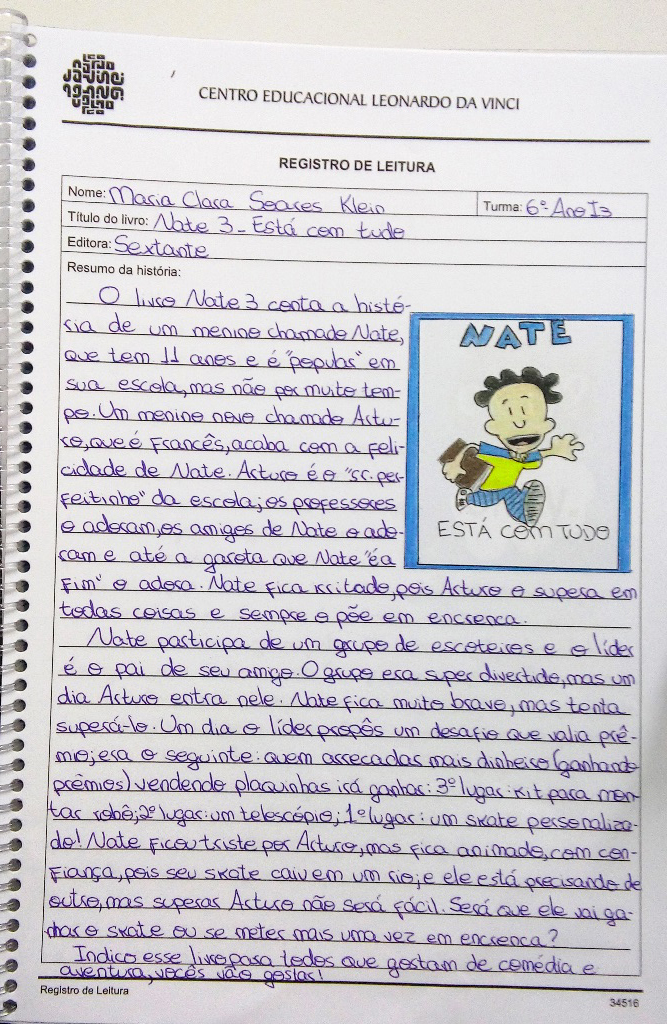 CENTRO EDUCACIONAL LEONARDO DA VINCI
REGISTRO DE LEITURA
Nome: Maria Clara Soares Klein
Turma: 6º Ano I3
Título do livro: Nate 3 - Está com tudo
Editora: Sextante
Resumo da história:
O livro Nate 3 conta a histó-
ria de um menino chamado Nate,
que tem 11 anos e é "popular" em
sua escola, mas não por muito tem-
po. Um menino novo chamado Artu-
ro, que é Francês, acaba com a feli-
cidade de Nate. Arturo é o "sr. per-
feitinho" da escola; os professores
o adoram, os amigos de Nate o ado-
ram e até a garota que Nate "é a
fim" o adora. Nate fica irritado, pois Arturo o supera em
todas coisas e sempre o põe em encrenca.
Nate participa de um grupo de escoteiros e o líder
é o pai de seu amigo. O grupo era super divertido, mas um
dia Arturo entra nele. Nate fica muito bravo, mas tenta
superá-lo. Um dia o líder propôs um desafio que valia prê-
mio; era o seguinte: quem arrecadar mais dinheiro (ganhando
prêmios) vendendo plaquinhas irá ganhar: 3º lugar: kit para mon-
tar robô; 2º lugar: um telescópio; 1º lugar: um skate personaliza-
do! Nate ficou triste por Arturo, mas fica animado, com con-
fiança, pois seu skate caiu em um rio, e ele está precisando de
outro, mas superar Arturo não será fácil. Será que ele vai ga-
nhar o skate ou se meter mais uma vez em encrenca?
Indico esse livro para todos que gostam de comédia e
aventura, vocês vão gostar!
NATE
ESTÁ COM TUDO
Registro de Leitura
34516